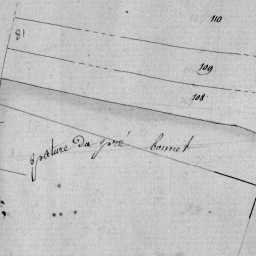 110
81
109
108
pature du pré bonnet